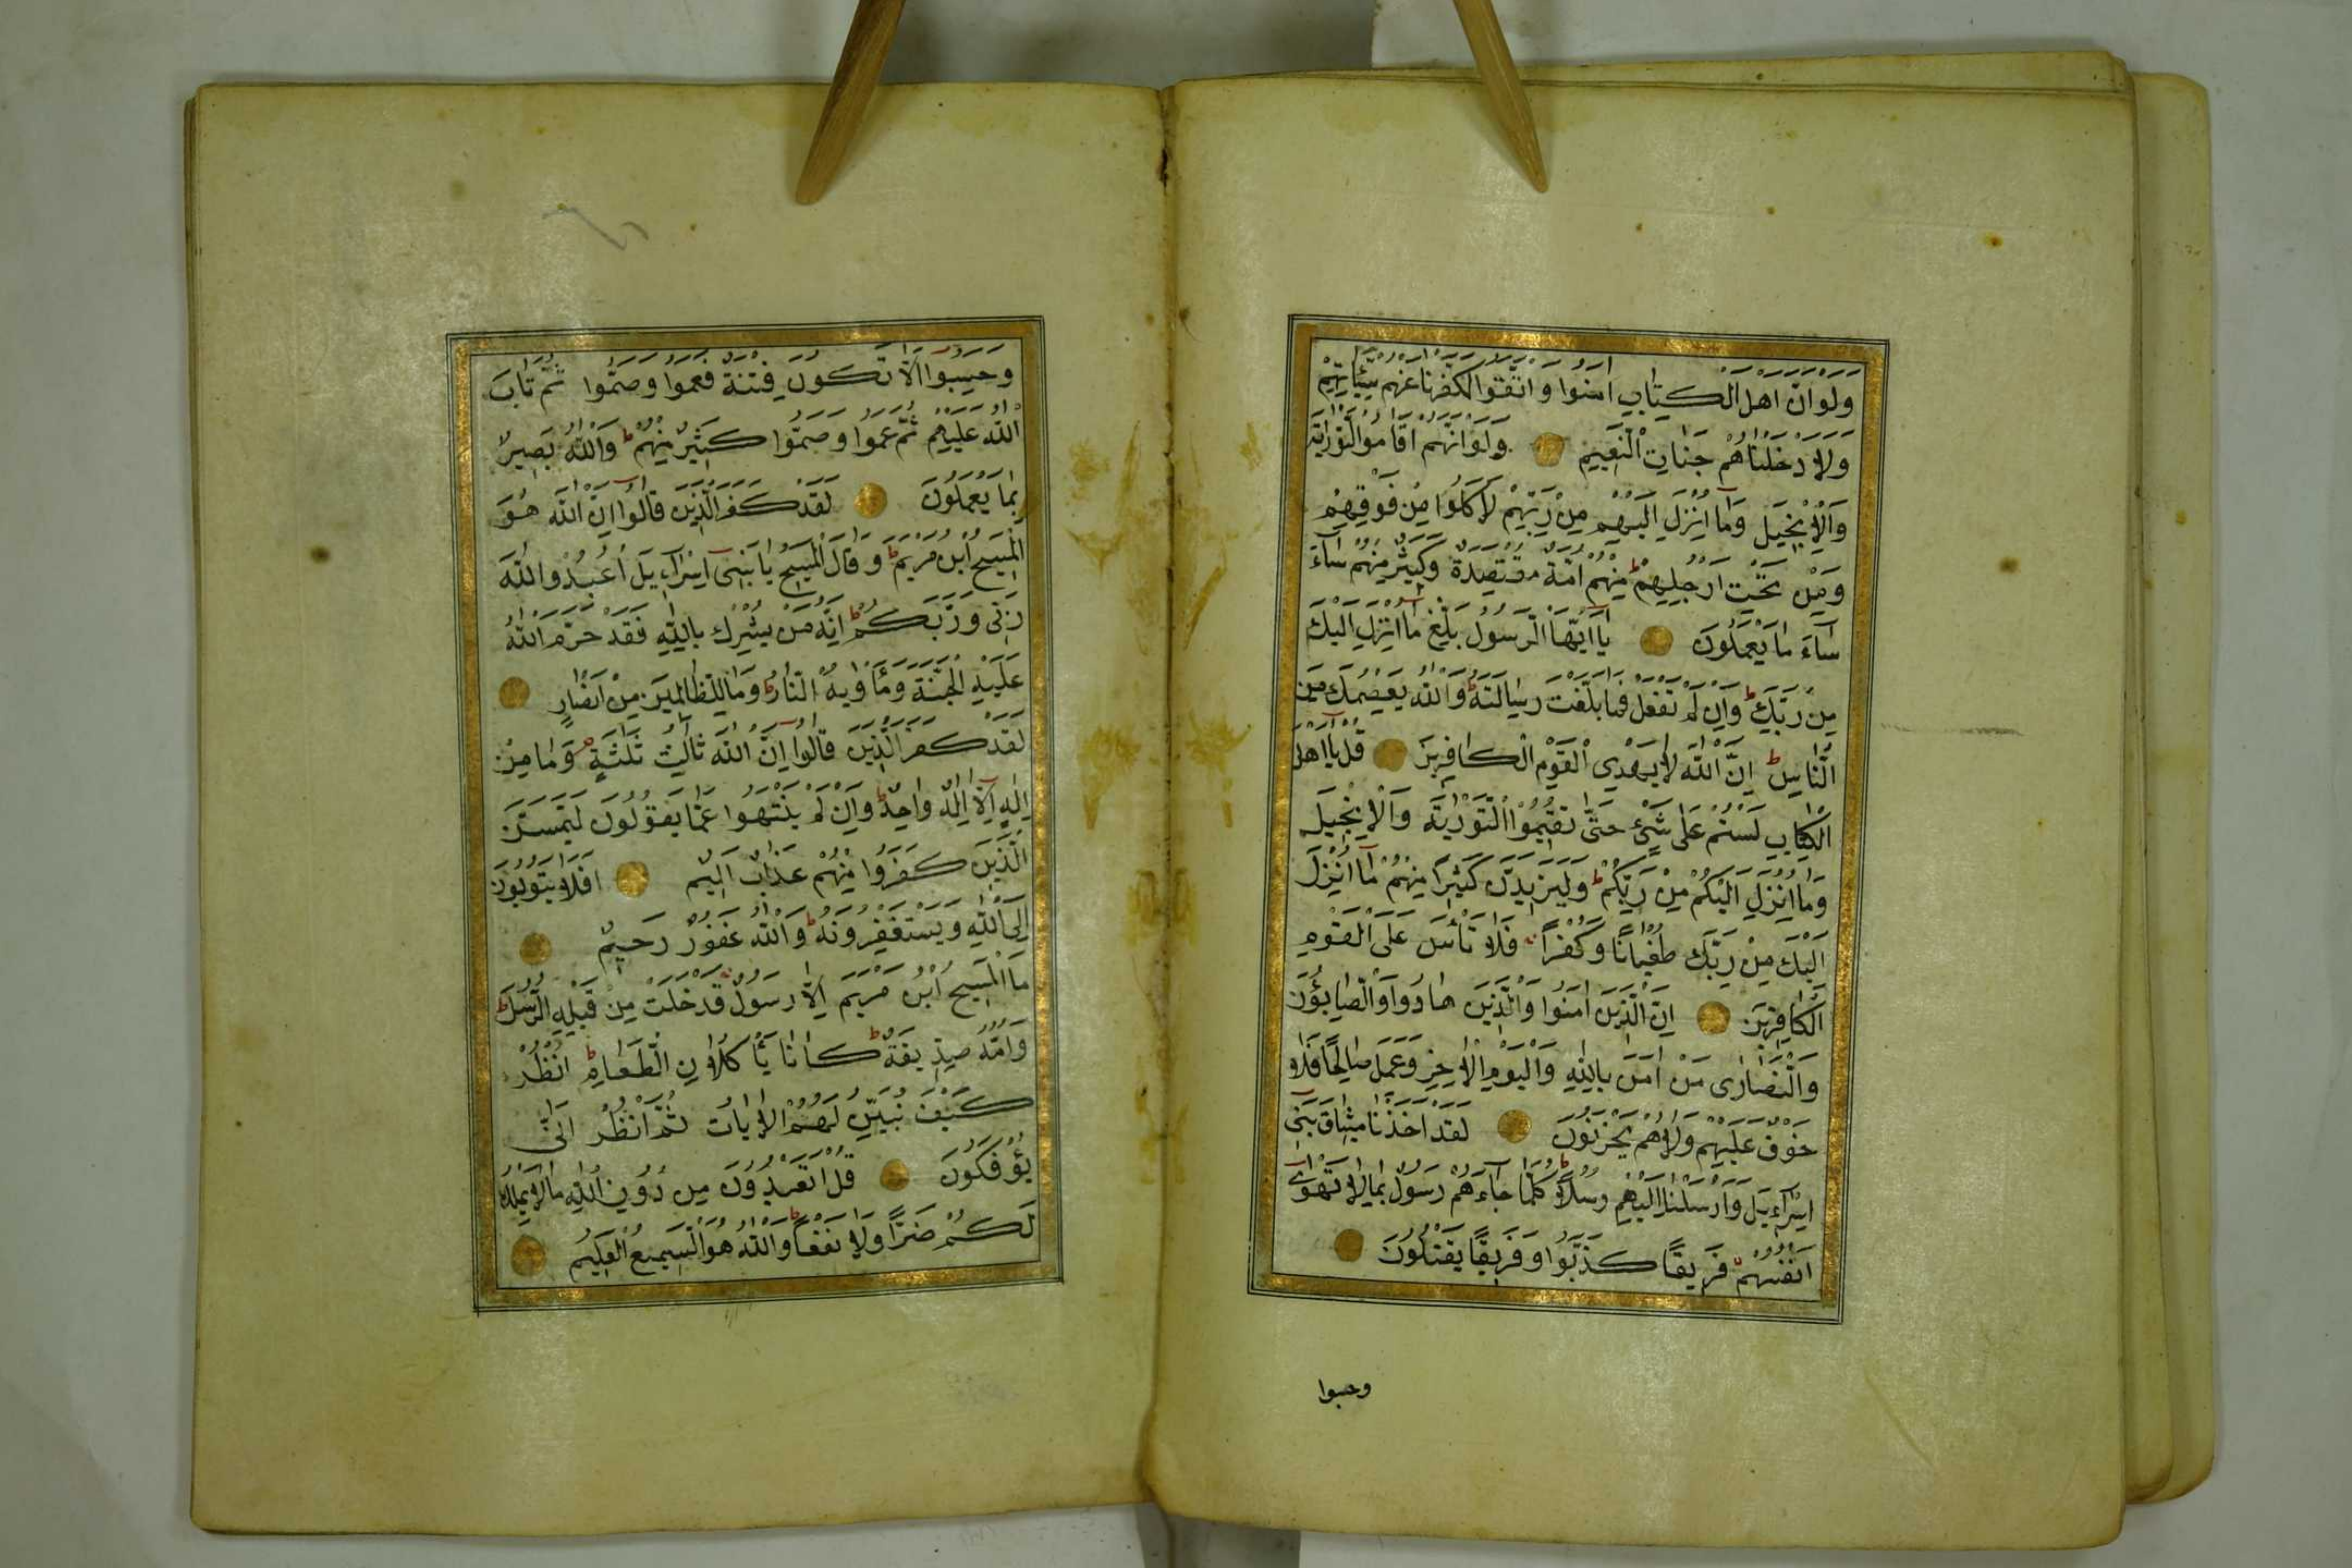 وَلَوْ اَنَّ اَهْلَ الْكِتَابِ اٰمَنُوا وَاتَّقَوْا لَكَفَّرْنَا عَنْهُمْ سَيِّئَاتِهِمْ
وَلَاَدْخَلْنَاهُمْ جَنَّاتِ النَّعِيمِ وَلَوْ اَنَّهُمْ اَقَامُوا التَّوْرٰيةَ
وَالْاِنْجِيلَ وَمَا اُنْزِلَ اِلَيْهِمْ مِنْ رَبِّهِمْ لَاَكَلُوا مِنْ فَوْقِهِمْ
وَمِنْ تَحْتِ اَرْجُلِهِمْ ط مِنْهُمْ اُمَّةٌ مُقْتَصِدَةٌ وَكَثِيرٌ مِنْهُمْ سَآءَ
سَآءَ مَا يَعْمَلُونَ يَآ اَيُّهَا الرَّسُولُ بَلِّغْ مَآ اُنْزِلَ اِلَيْكَ
مِنْ رَبِّكَ ط وَاِنْ لَمْ تَفْعَلْ فَمَا بَلَّغْتَ رِسَالَتَهُ ط وَاللّٰهُ يَعْصِمُكَ مِنَ
النَّاسِ ط اِنَّ اللّٰهَ لَا يَهْدِي الْقَوْمَ الْكَافِرِينَ قُلْ يَآ اَهْلَ
الْكِتَابِ لَسْتُمْ عَلٰى شَيْءٍ حَتّٰى تُقِيمُوا التَّوْرٰيةَ وَالْاِنْجِيلَ
وَمَآ اُنْزِلَ اِلَيْكُمْ مِنْ رَبِّكُمْ ط وَلَيَزِيدَنَّ كَثِيرًا مِنْهُمْ مَآ اُنْزِلَ
اِلَيْكَ مِنْ رَبِّكَ طُغْيَانًا وَكُفْرًا فَلَا تَأْسَ عَلَى الْقَوْمِ
الْكَافِرِينَ اِنَّ الَّذِينَ اٰمَنُوا وَالَّذِينَ هَادُوا وَالصَّابِؤُنَ
وَالنَّصَارٰى مَنْ اٰمَنَ بِاللّٰهِ وَالْيَوْمِ الْاٰخِرِ وَعَمِلَ صَالِحًا فَلَا
خَوْفٌ عَلَيْهِمْ وَلَا هُمْ يَحْزَنُونَ لَقَدْ اَخَذْنَا مِيثَاقَ بَنِي
اِسْرَآءِيلَ وَاَرْسَلْنَا اِلَيْهِمْ رُسُلًا ط كُلَّمَا جَآءَهُمْ رَسُولٌ بِمَا لَا تَهْوٰى
اَنْفُسُهُمْ فَرِيقًا كَذَّبُوا وَفَرِيقًا يَقْتُلُونَ
وحسبوا
وَحَسِبُوا اَلَّا تَكُونَ فِتْنَةٌ فَعَمُوا وَصَمُّوا ثُمَّ تَابَ
اللّٰهُ عَلَيْهِمْ ثُمَّ عَمُوا وَصَمُّوا كَثِيرٌ مِنْهُمْ ط وَاللّٰهُ بَصِيرٌ
بِمَا يَعْمَلُونَ لَقَدْ كَفَرَ الَّذِينَ قَالُوا اِنَّ اللّٰهَ هُوَ
الْمَسِيحُ ابْنُ مَرْيَمَ ط وَقَالَ الْمَسِيحُ يَا بَنِي اِسْرَآءِيلَ اعْبُدُوا اللّٰهَ
رَبِّي وَرَبَّكُمْ ط اِنَّهُ مَنْ يُشْرِكْ بِاللّٰهِ فَقَدْ حَرَّمَ اللّٰهُ
عَلَيْهِ الْجَنَّةَ وَمَأْوٰيهُ النَّارُ ط وَمَا لِلظَّالِمِينَ مِنْ اَنْصَارٍ
لَقَدْ كَفَرَ الَّذِينَ قَالُوا اِنَّ اللّٰهَ ثَالِثُ ثَلٰثَةٍ وَمَا مِنْ
اِلٰهٍ اِلَّا اِلٰهٌ وَاحِدٌ ط وَاِنْ لَمْ يَنْتَهُوا عَمَّا يَقُولُونَ لَيَمَسَّنَّ
الَّذِينَ كَفَرُوا مِنْهُمْ عَذَابٌ اَلِيمٌ اَفَلَا يَتُوبُونَ
اِلَى اللّٰهِ وَيَسْتَغْفِرُونَهُ ط وَاللّٰهُ غَفُورٌ رَحِيمٌ
مَا الْمَسِيحُ ابْنُ مَرْيَمَ اِلَّا رَسُولٌ قَدْ خَلَتْ مِنْ قَبْلِهِ الرُّسُلُ ط
وَاُمُّهُ صِدِّيقَةٌ ط كَانَا يَأْكُلَانِ الطَّعَامَ ط اُنْظُرْ
كَيْفَ نُبَيِّنُ لَهُمُ الْاٰيَاتِ ثُمَّ انْظُرْ اَنّٰى
يُؤْفَكُونَ قُلْ اَتَعْبُدُونَ مِنْ دُونِ اللّٰهِ مَا لَا يَمْلِكُ
لَكُمْ ضَرًّا وَلَا نَفْعًا ط وَاللّٰهُ هُوَ السَّمِيعُ الْعَلِيمُ